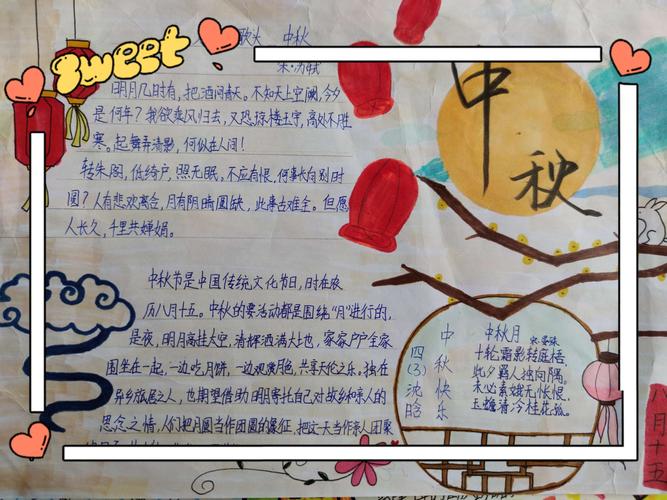 sweet
歌头 中秋
宋·苏轼
明月几时有,把酒问青天。不知天上空阙,今夕
是何年?我欲乘风归去,又恐掠楼玉宇,高处不胜
寒。起舞弄清影,何似在人间!
转朱阁,低绮户,照无眠。不应有恨,何事长向别时
圆?人有悲欢离合,月有阴晴圆缺,此事古难全。但愿
人长久,千里共婵娟。
中秋节是中国传统文化节日,时在农
历八月十五。中秋的要活动都是围绕“月”进行的,
是夜,明月高挂太空,清辉洒满大地,家家户户全家
围坐在一起,一边吃月饼,一边观赏月色,共享天伦之乐。独在
异乡旅居之人,也期望借助明月寄托自己对故乡和亲人的
思念之情,人们把月圆当作团圆的象征,把这天当作亲人团聚
中秋
中秋快乐
四(3)沈晗
中秋月 宋·晏殊
十轮霜影转庭梧,
此夕羁人独向隅。
未必素娥无怅恨,
玉蟾清冷桂花孤。
八月十五